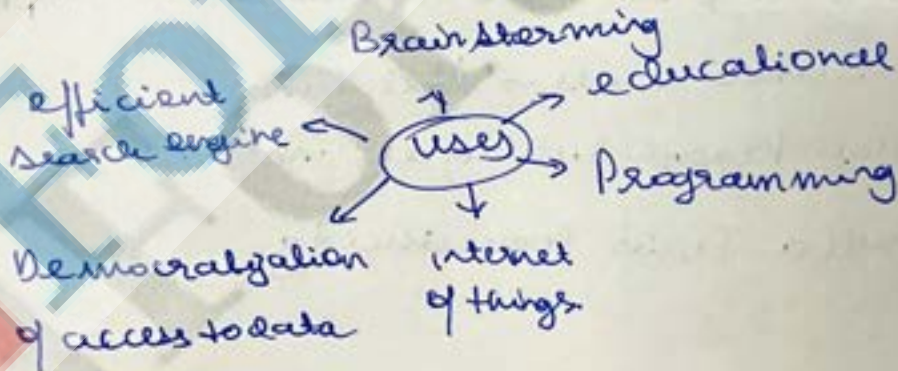 Brainstorming
educational
efficient
search engine
uses
Programming
Democratization
of access to data
internet
of things